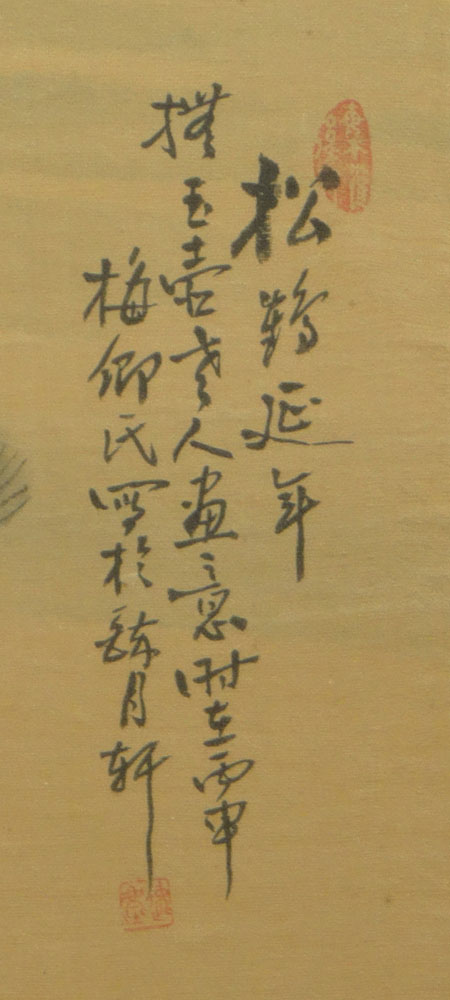 松鶴延年
撫玉壺老人畫意時在丙申
梅卿氏寫於月軒